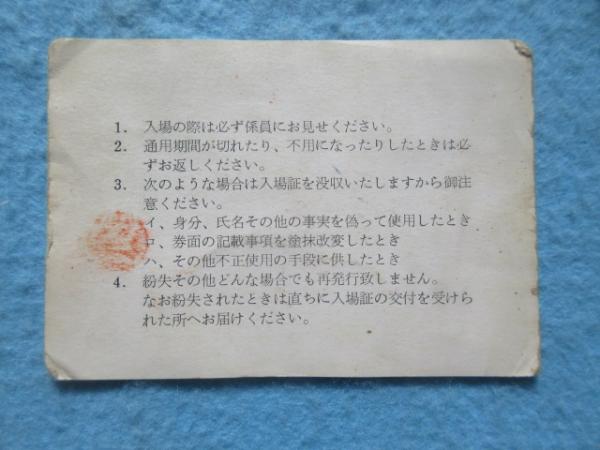 1. 入場の際は必ず係員にお見せください。
2. 通用期間が切れたり、不用になったりしたときは必
ずお返しください。
3. 次のような場合は入場証を没収いたしますから御注
意ください。
イ、身分、氏名その他の事実を偽って使用したとき
ロ、券面の記載事項を塗抹改変したとき
ハ、その他不正使用の手段に供したとき
4. 紛失その他どんな場合でも再発行致しません。
なお紛失されたときは直ちに入場証の交付を受けら
れた所へお届けください。